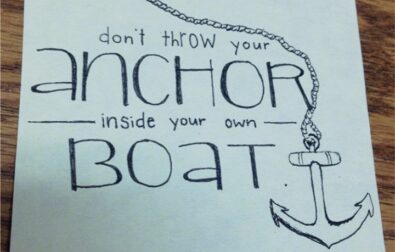 don't throw your
aNCHOR
inside your own
BOaT.